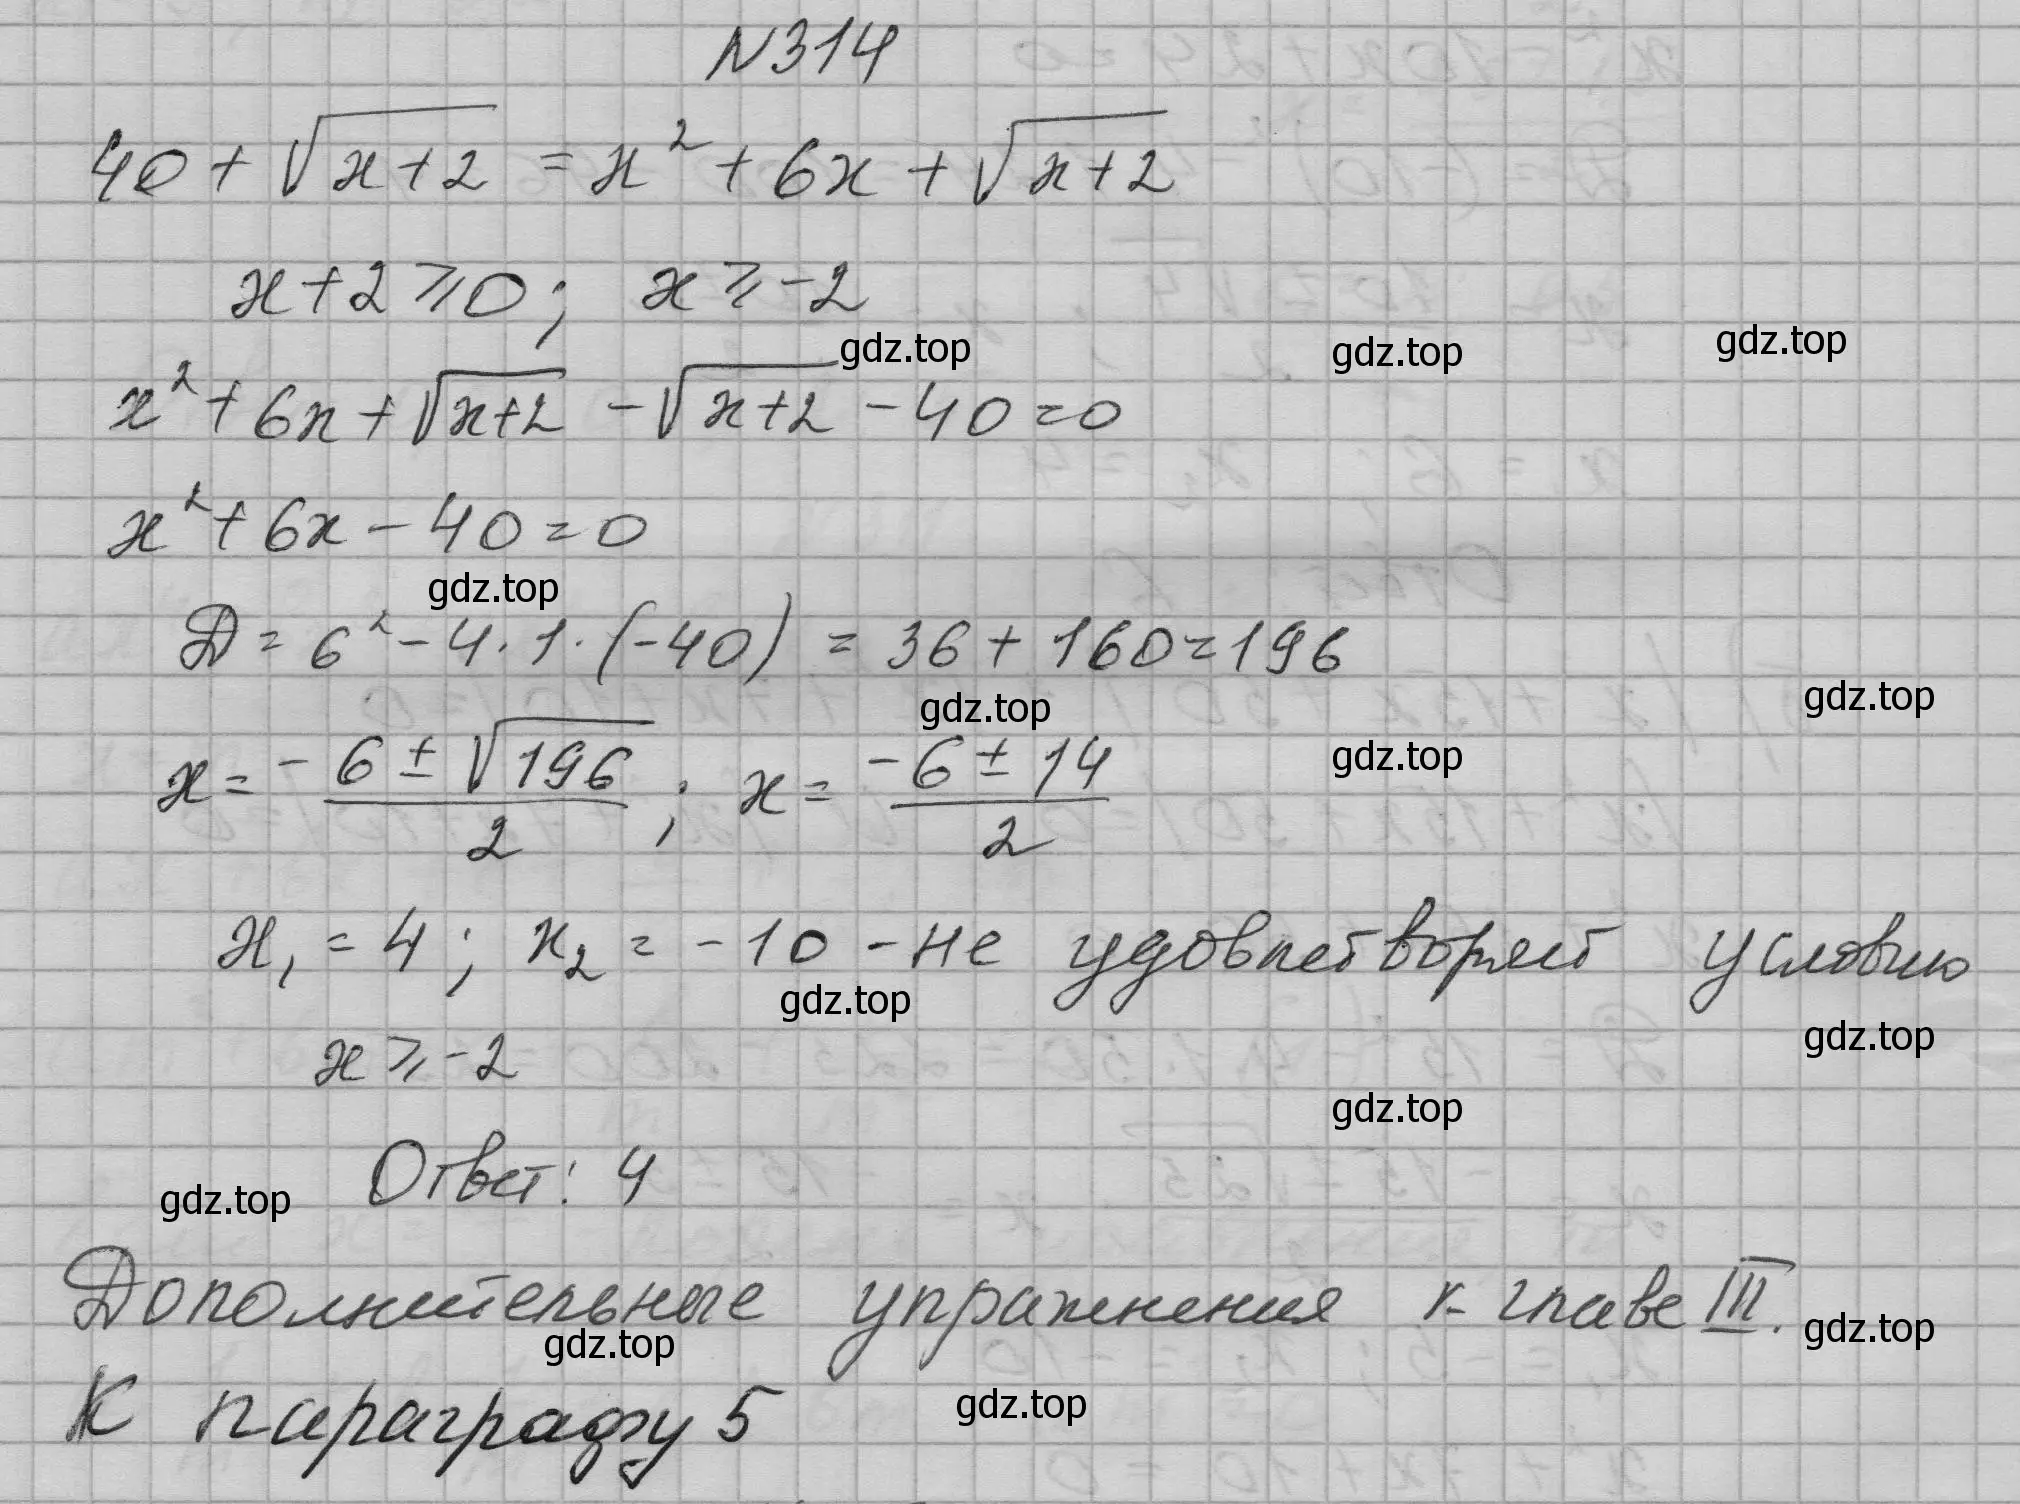 N314
40 + √x+2 = x² + 6x + √x+2
x+2 ≥ 0; x ≥ -2
gdz.top gdz.top gdz.top
x² + 6x + √x+2 - √x+2 - 40 = 0
x² + 6x - 40 = 0
gdz.top
D = 6² - 4·1·(-40) = 36 + 160 = 196
gdz.top gdz.top
x = (-6 ± √196)/2; x = (-6 ± 14)/2 gdz.top
x₁ = 4; x₂ = -10 - не удовлетворяет условию
gdz.top gdz.top
x ≥ -2
gdz.top
Ответ: 4
gdz.top
Дополнительные упражнения к главе III.
gdz.top gdz.top
К параграфу 5
gdz.top